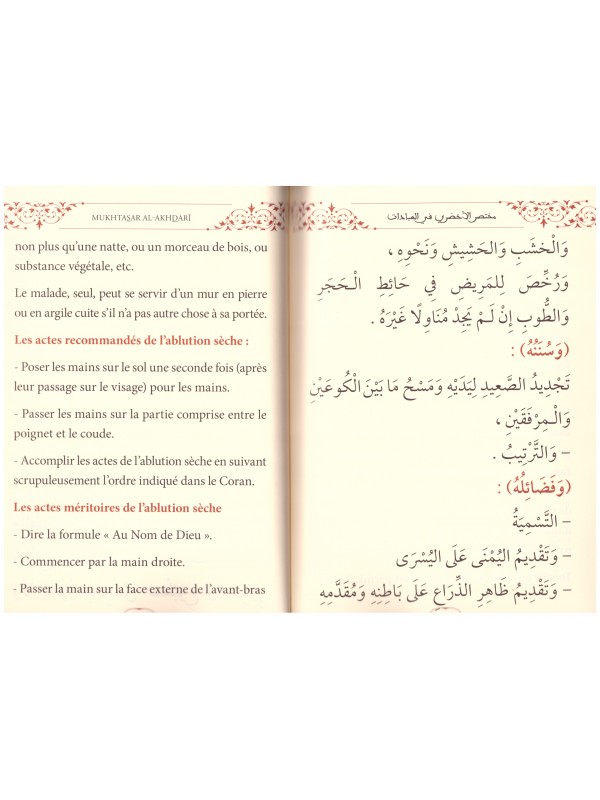 MUKHTAṢAR AL-AKHḌARĪ
non plus qu’une natte, ou un morceau de bois, ou
substance végétale, etc.
Le malade, seul, peut se servir d’un mur en pierre
ou en argile cuite s’il n’a pas autre chose à sa portée.
Les actes recommandés de l’ablution sèche :
- Poser les mains sur le sol une seconde fois (après
leur passage sur le visage) pour les mains.
- Passer les mains sur la partie comprise entre le
poignet et le coude.
- Accomplir les actes de l’ablution sèche en suivant
scrupuleusement l’ordre indiqué dans le Coran.
Les actes méritoires de l’ablution sèche
- Dire la formule « Au Nom de Dieu ».
- Commencer par la main droite.
- Passer la main sur la face externe de l’avant-bras
مختصر الأخضري في العبادات
وَالْخَشَبِ وَالحَشِيشِ وَنَحْوِهِ ،
وَرُخِّصَ لِلمَرِيضِ فِي حَائِطِ الْـحَجَرِ
وَالطُّوبِ إِنْ لَمْ يَجِدْ مُنَاوِلًا غَيْرَهُ .
(وَسُنَنُهُ) :
تَجْدِيدُ الصَّعِيدِ لِيَدَيْهِ وَمَسْحُ مَا بَيْنَ الْكُوعَيْنِ
وَالْـمِرْفَقَيْنِ ،
– وَالتَّرْتِيبُ .
(وَفَضَائِلُهُ) :
– التَّسْمِيَةُ
– وَتَقْدِيمُ اليُمْنَى عَلَى اليُسْرَى
– وَتَقْدِيمُ ظَاهِرِ الذِّرَاعِ عَلَى بَاطِنِهِ وَمُقَدَّمِهِ